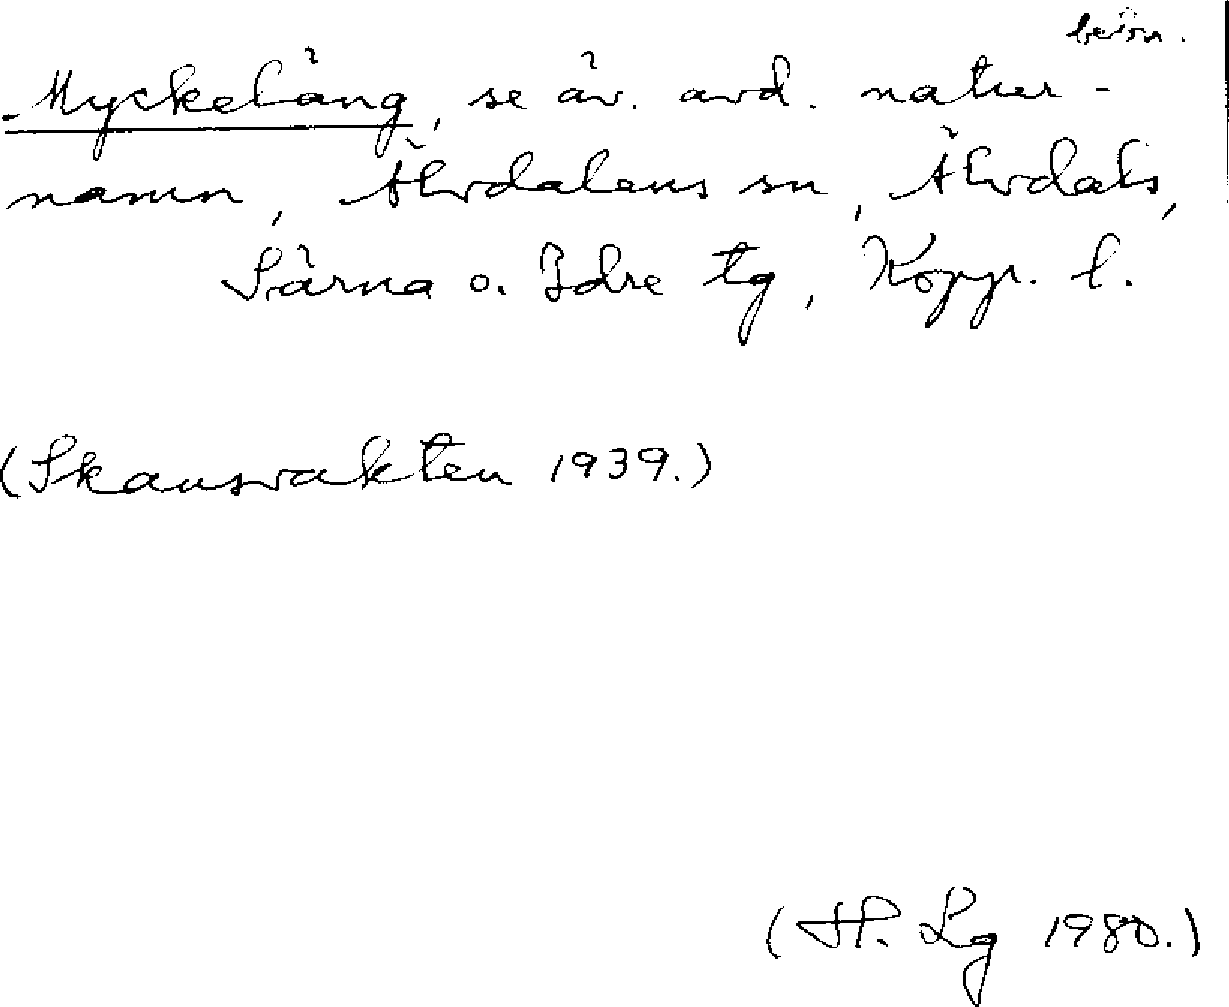 beisn.
Myckeläng, se äv. avd. natur-
namn, Älvdalens sn, Älvdals,
Särna o. Idre tg, Kopp. l.
(Skansvakten 1939.)
(H. Lg 1980.)